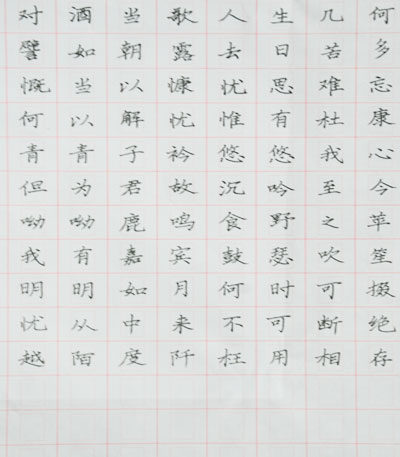 对酒当歌人生几何
譬如朝露去日苦多
慨当以慷忧思难忘
何以解忧惟有杜康
青青子衿悠悠我心
但为君故沉吟至今
呦呦鹿鸣食野之苹
我有嘉宾鼓瑟吹笙
明明如月何时可掇
忧从中来不可断绝
越陌度阡枉用相存